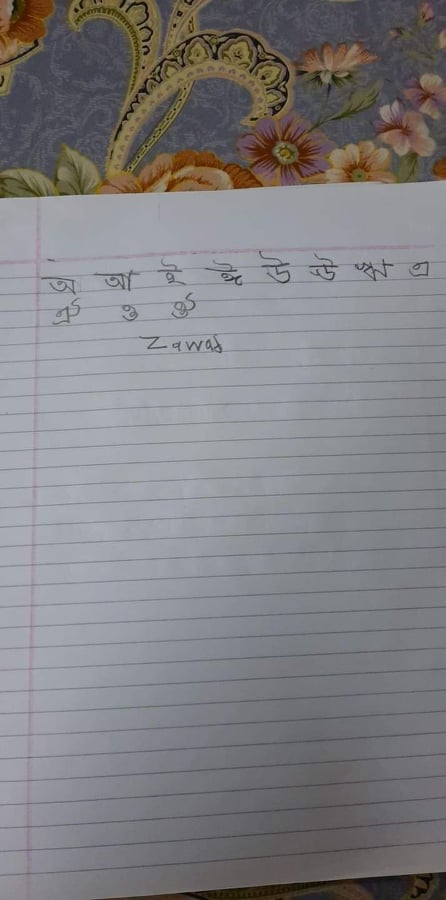 অ আ ই ঈ উ ঊ ঋ এ
ঐ ও ঔ
Zawad